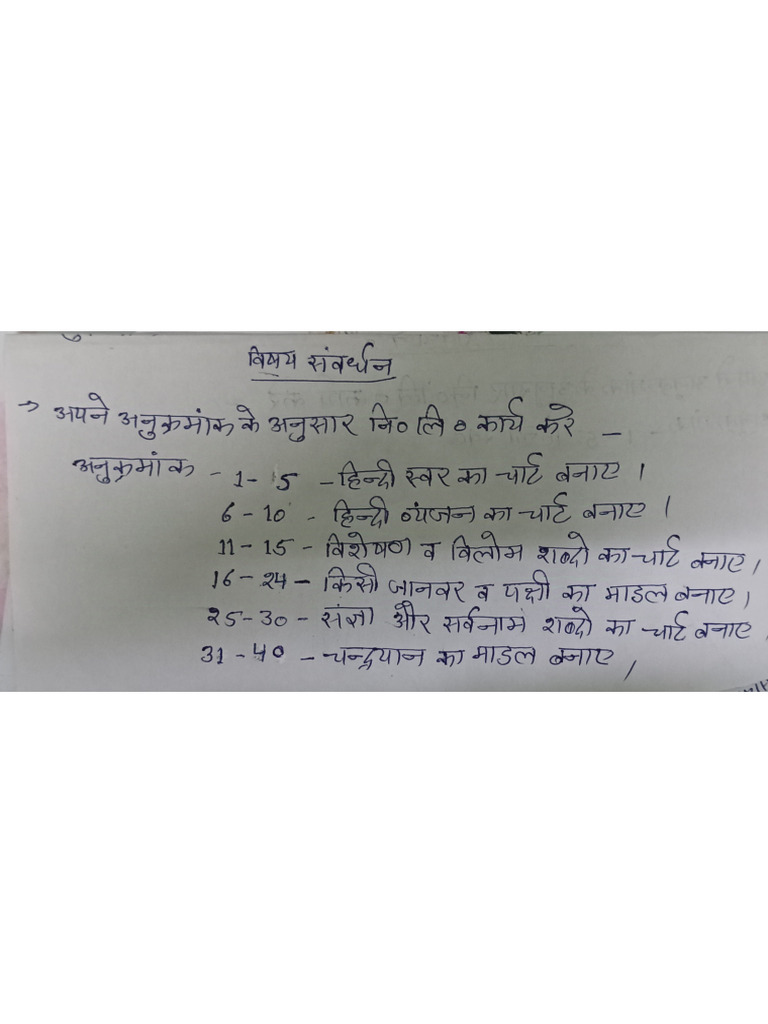 विषय संवर्धन
→ अपने अनुक्रमांक के अनुसार नि० लि० कार्य करे —
अनुक्रमांक - 1- 5 - हिन्दी स्वर का चार्ट बनाए।
6 - 10 - हिन्दी व्यंजन का चार्ट बनाए।
11 - 15 - विशेषण व विलोम शब्दो का चार्ट बनाए।
16 - 24 - किसी जानवर व पक्षी का माडल बनाए।
25 - 30 - संज्ञा और सर्वनाम शब्दो का चार्ट बनाए
31 - 40 - चन्द्रयान का माडल बनाए।